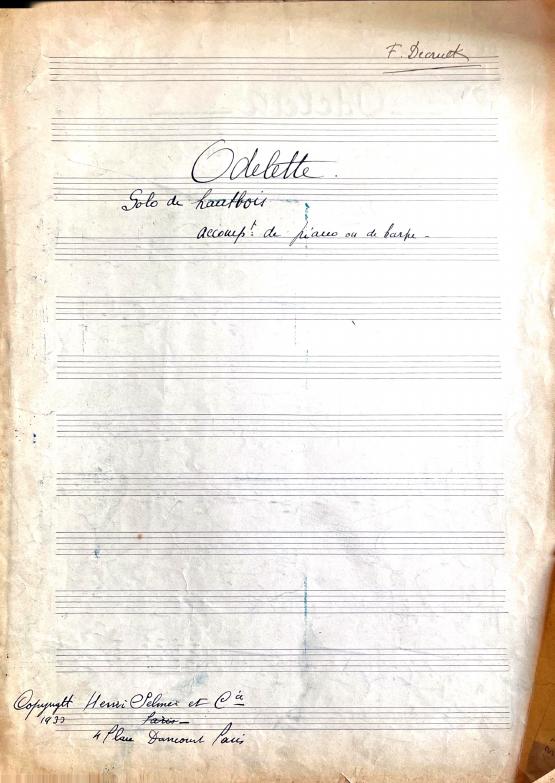 F. Decruck
Odelette.
Solo de hautbois
accomp.t de piano ou de harpe -
Copyright Henri Selmer et Cie
1933
Paris -
4 Place Dancourt Paris